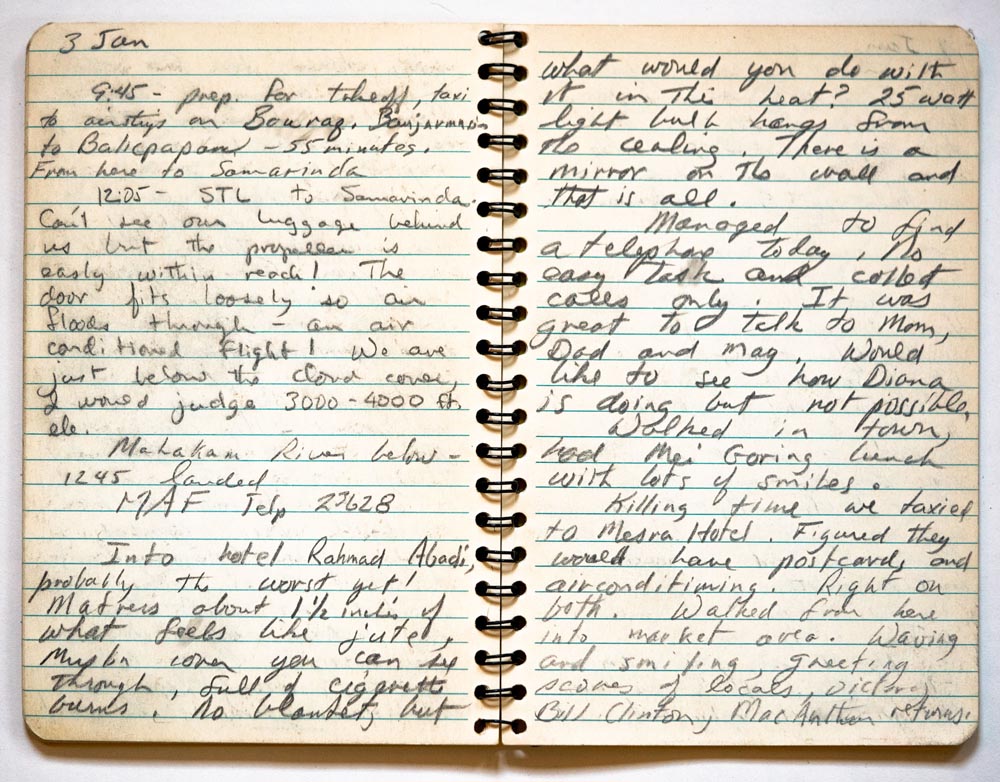 3 Jan
9:45 - prep. for takeoff, taxi
to on Bouraq. Banjarmasin
to Balicpapam - 55 minutes.
From here to Samarinda
12:05 - STL to Samarinda.
Can't see our luggage behind
us but the propellar is
easly within reach! The
door fits loosely so air
floods through - an air
conditioned flight! We are
just below the cloud cover,
I would judge 3000-4000 ft.
ele.
Mahakam River below -
1245 landed
MAF Telp 23628
Into hotel Rahmad Abadi,
probably the worst yet!
Matress about 1½ inches of
what feels like jute,
muslin cover you can see
through, full of cigarette
burns. No blanket, but
what would you do with
it in this heat? 25 watt
light bulb hangs from
the cealing. There is a
mirror on the wall and
that is all.
Managed to find
a telephone today, no
easy task and collect
calls only. It was
great to talk to Mom,
Dad and Mag. Would
like to see how Diana
is doing but not possible.
Walked in town,
had Mei Goring lunch
with lots of smiles.
Killing time we taxied
to Mesra Hotel. Figured they
would have postcards and
airconditiming. Right on
both. Walked from here
into market area. Waving
and smiling, greeting
scores of locals,
Bill Clinton, MacArthur returns.